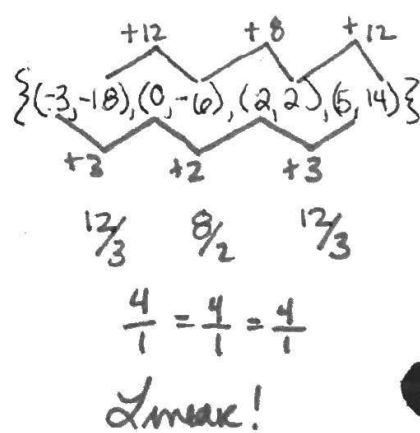 +12 +8 +12
{(-3,-18),(0,-6),(2,2),(5,14)}
+3 +2 +3
12/3 8/2 12/3
4/1 = 4/1 = 4/1
Linear!